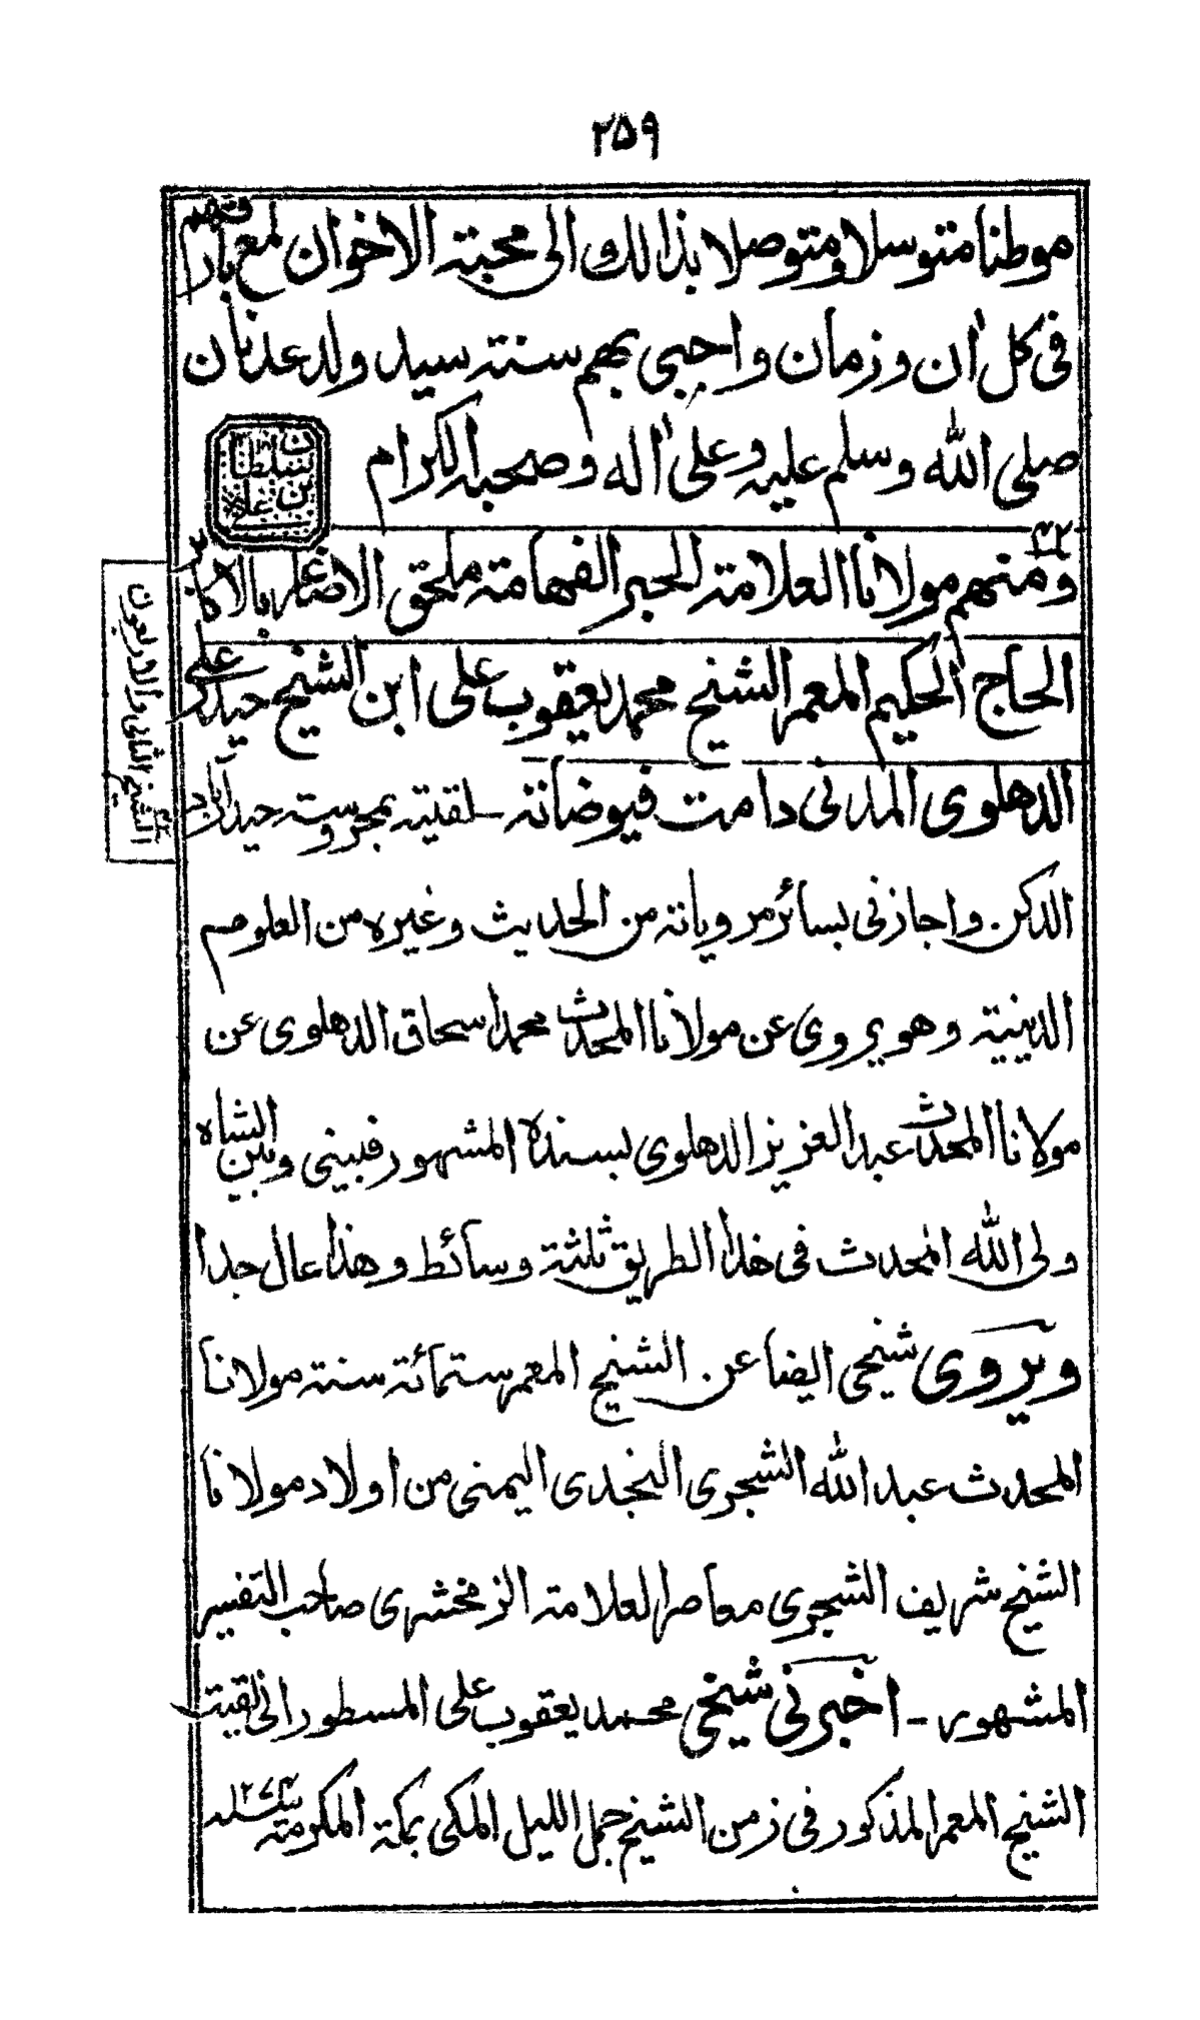 ۲۵۹
موطنا متوسلا ومتوصلا بذالك الى محبتة الاخوان لمع بارقتهم
فى كل اٰن وزمان واحيي بهم سنة سيد ولد عدنان
صلى الله وسلم عليه وعلى اٰله وصحبه الكرام
سلطان بن علي
۴۲
ومنهم مولانا العلامة الحبر الفهامة ملحق الاصاغر بالاكابر
الحاج الحكيم المعمر الشيخ محمد يعقوب على ابن الشيخ حيدر على
الشيخ الثانى والاربعون
الدهلوى المدنى دامت فيوضاته - لقيته بمحروسة حيدراٰباد
الدكن واجازنى بسائر مروياته من الحديث وغيره من العلوم
الدينية وهو يروى عن مولانا المحدث محمد اسحاق الدهلوى عن
مولانا المحدث عبد العزيز الدهلوى بسنده المشهور فبينى وبين الشاه
ولى الله المحدث فى هٰذا الطريق ثلثة وسائط وهٰذا عال جدا
ويروى شيخى ايضا عن الشيخ المعمر ستمائة سنة مولانا
المحدث عبد الله الشجرى النجدى اليمنى من اولاد مولانا
الشيخ شريف الشجرى معاصر العلامة الزمخشرى صاحب التفسير
المشهور - اخبرنى شيخى محمد يعقوب على المسطور انى لقيت
الشيخ المعمر المذكور فى زمن الشيخ جمل الليل المكى بمكة المكرمة سنة ۱۲۷۴